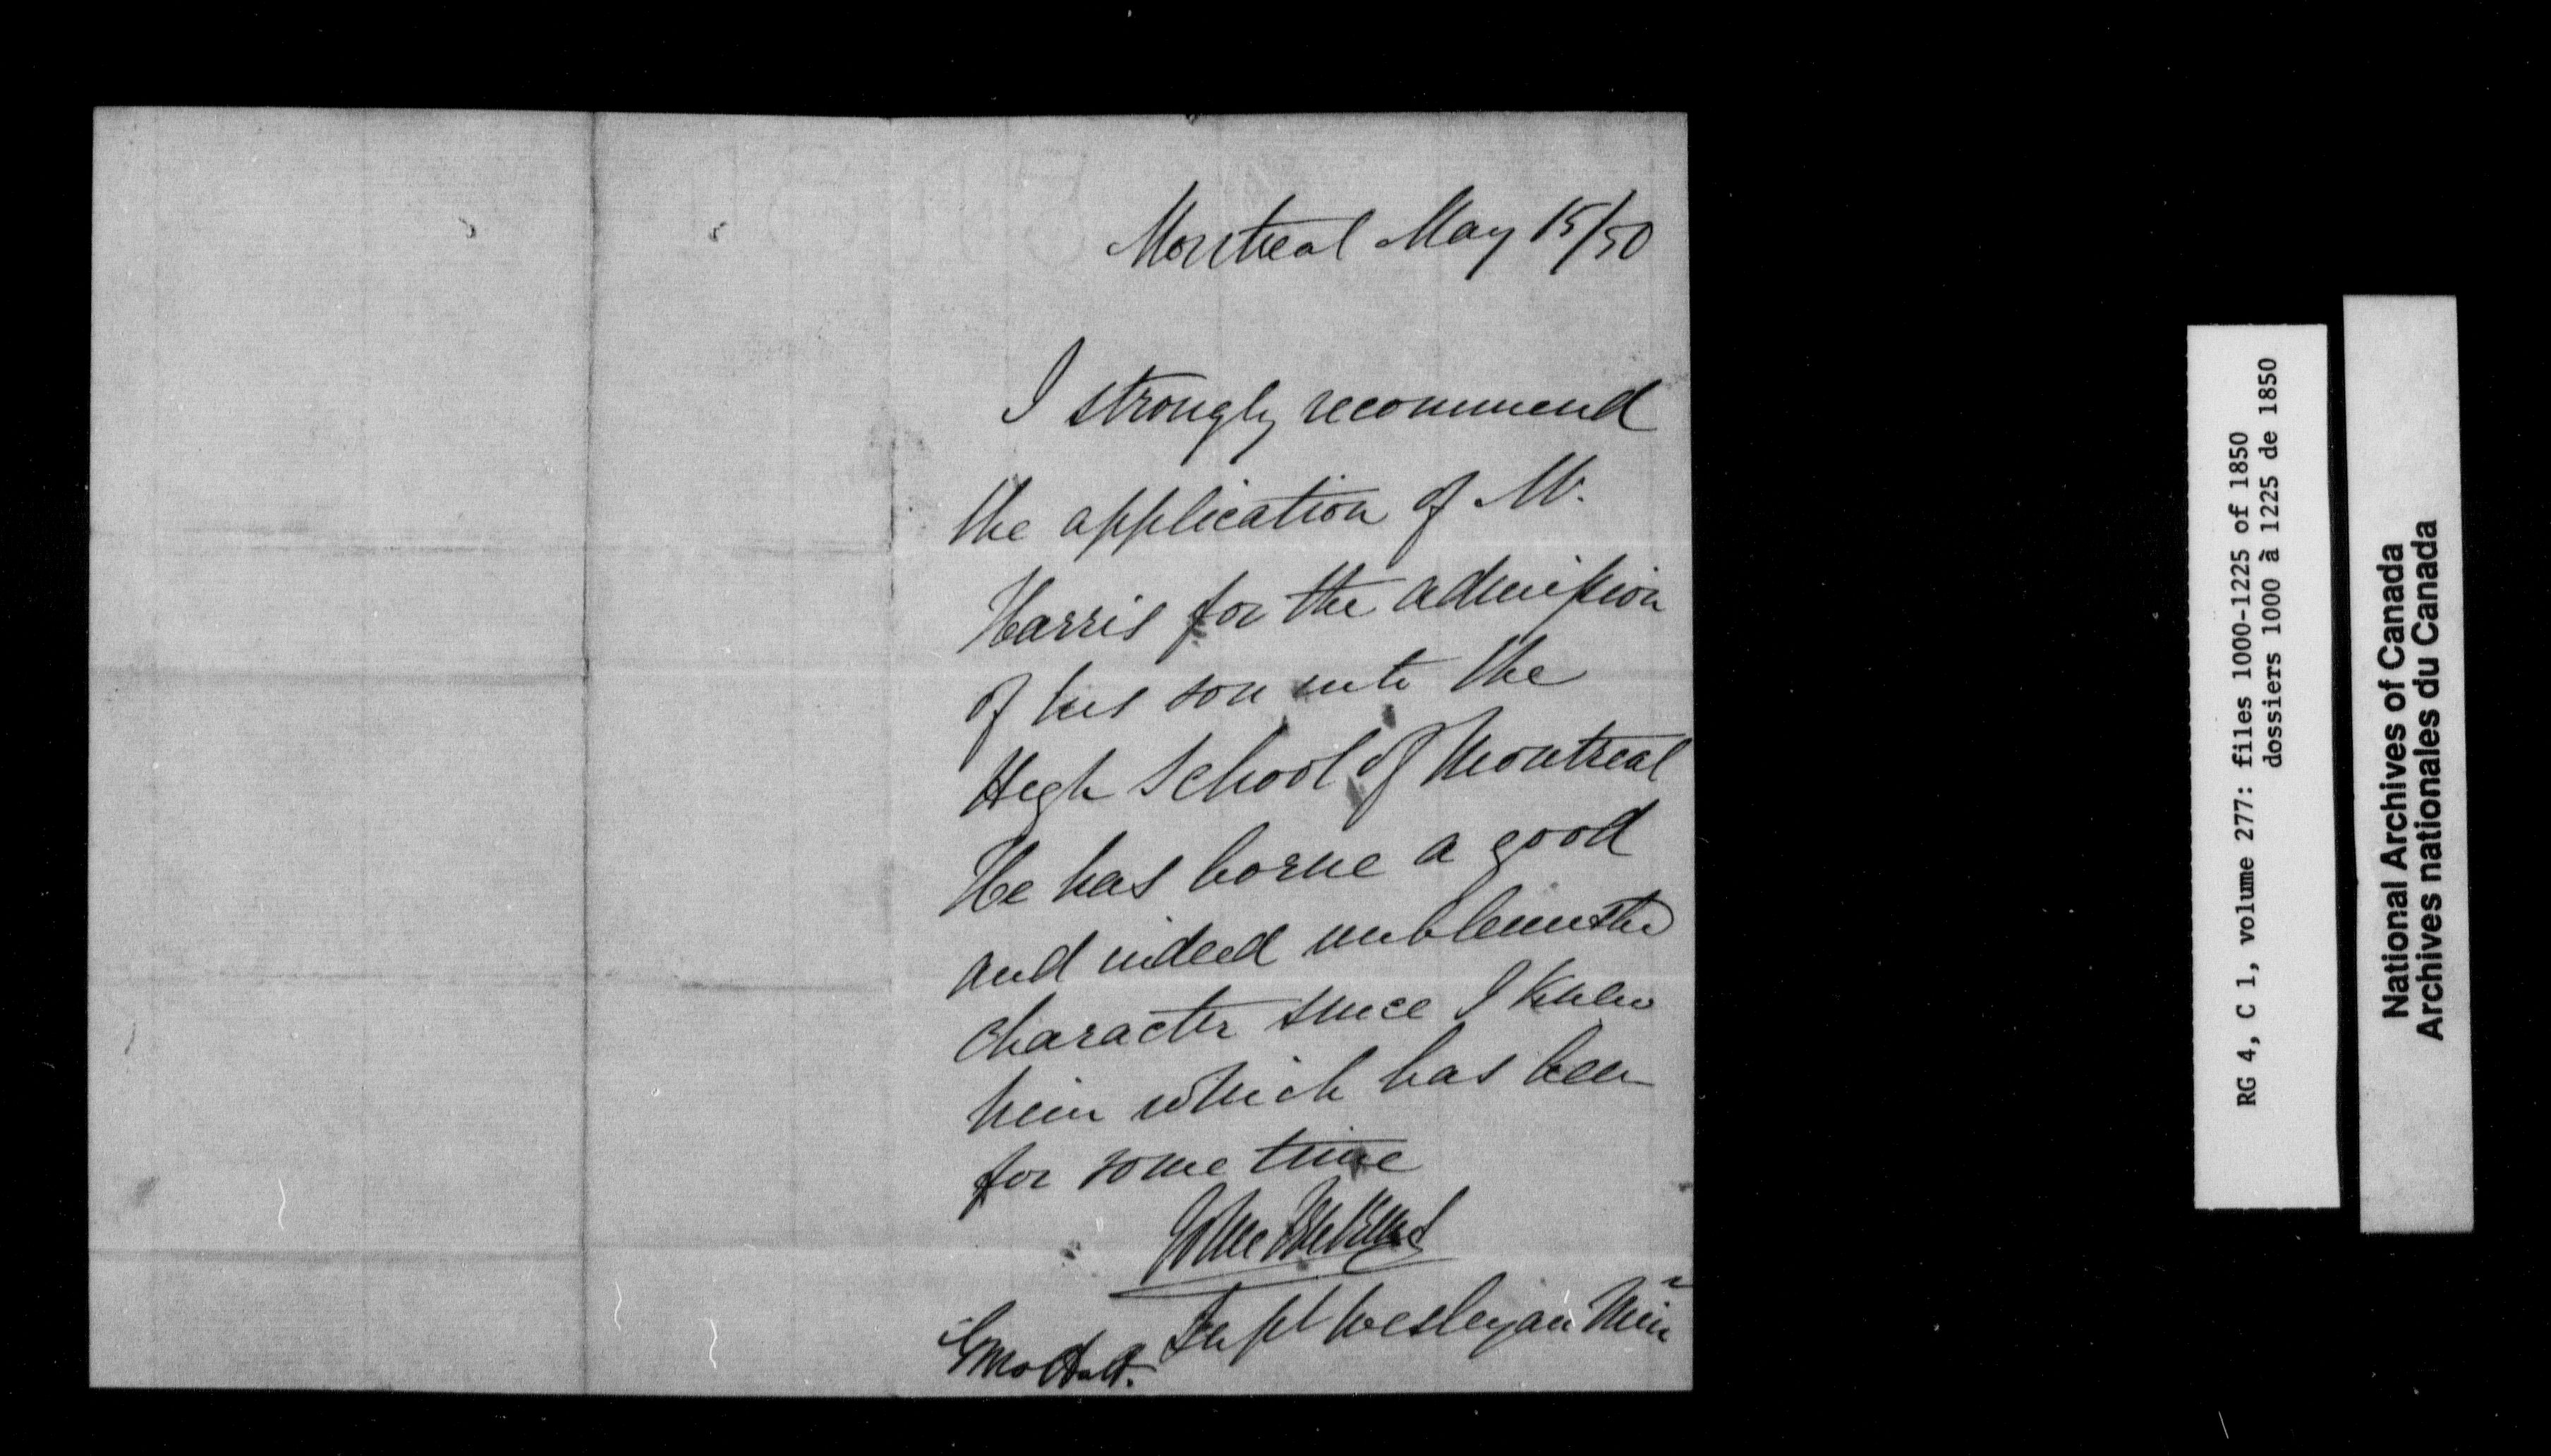 Montreal May 15/50
I strongly recommend
the application of Mr.
Harris for the admission
of his son into the
High School of Montreal
He has borne a good
and indeed unblemishd
character since I knew
him which has been
for some time
John Jenkins
Supt Wesleyan Min
RG 4, C 1, volume 277: files 1000-1225 of 1850
dossiers 1000 à 1225 de 1850
National Archives of Canada
Archives nationales du Canada